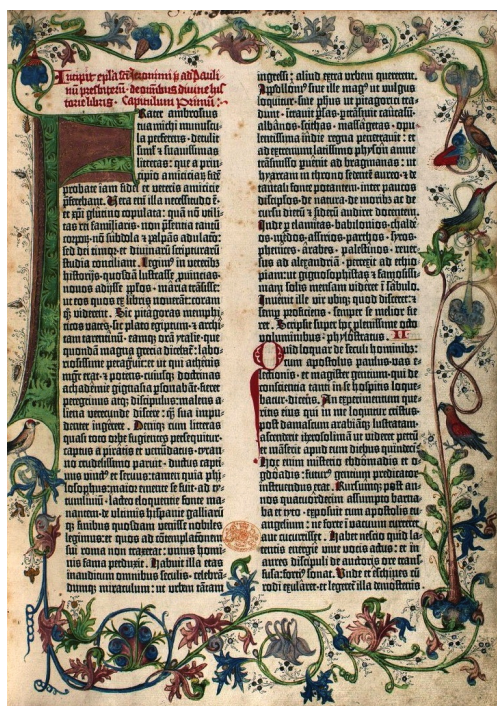 Incipit epistola sancti iheronimi ad pauli
num presbiterum de omnibus divine his
torie libris. Capitulum Primum:
Frater ambrosius
tua michi munuscu
la preferens· detulit
simul et suavissimas
litteras: que a prin
cipio amiciciarum fidē
probate iam fidei et veteris amicicie
preferebant. Vera enī illa necessitudo ē·
et xp̄i glutino copulata: quā nō utili
tas rei familiaris· non p̄sentia tantū
corporū· nō subdola et palpās adulacō:
sed dei timor· et divinarū scripturarū
studia conciliant. Legimus in veteribus
historijs· quosdā lustrasse ꝓuincias·
novos adijsse ꝓlos· maria trāsisse:
ut eos quos ex libris noverāt: coram
qȝ viderēt. Sic pitagoras memphi
ticos vates· sic plato egiptum· et archi
tam tarentinū· eamqȝ orā ytalie· que
quondā magna grecia dicebat: labo
riosissime peragravit: et ut qui athenis
mgr̄ erat· et potens· cuiusqȝ doctrinas
achademie gignasia ꝑsonabāt· fieret
peregrinus atqȝ discipulus: malens a
liena verecunde discere: qȝ sua impu
denter ingerere. Deniqȝ cum litteras
quasi toto orbe fugientes persequitur·
captus a piratis et venūdatus· tyran
no crudelissimo paruit· ductus capti
vus vinctus et servus: tamen quia phi
losophus: maior emente se fuit· ad ty
tumliviū· lacteo eloquentie fonte ma
nantem· de ultimis hispanie galliarū
qȝ finibus· quosdam venisse nobiles
legimus: et quos ad cōtemplacōnem
sui roma non traxerat: unius homi
nis fama perduxit. Habuit illa etas
inauditum omnibus seculis· celebrā
dumqȝ miraculum: ut urbem tātam
ingressi: aliud extra urbem quererent.
Apolloni⁹ sive ille mag⁹ ut vulgus
loquitur· sive phūs ut pitagorici tra
dunt· intravit ꝑsas· ꝑtrāsivit caucasū·
albānos· scithas· massagetas· opu
lentissima indie regna penetravit: et
ad extremum latissimo physon amne
trāsmisso ꝑvenit ad bragmanas: ut
hyarcam in throno sedentē aureo· et de
tantali fonte potantem· inter paucos
discipulos· de natura· de moribus ac de
cursu dierū et siderū audiret docentem.
Inde ꝑ elamitas· babilonios· chalde
os· medos· assirios· parthos· syros·
phenices· arabes· palestinos· rever
sus ad alexandriā· perrexit ad ethio
piam: ut gignosophistas et famosissi
mam solis mensam videret ī sabulo.
Invenit ille vir ubiqȝ quod disceret: et
semꝑ proficiens· semper se melior fie
ret. Scripsit super hoc plenissime octo
voluminibus· phylostratus. II
Quid loquar de seculi hominibꝫ:
cum apostolus paulus· vas e
lectionis· et magister gentium· qui de
consciencia tanti in se hospitis loque
batur· dicens. An experimentum que
ritis eius qui in me loquitur cristus.
post damascum arabiāqȝ lustratam·
ascenderit iherosolimā ut videret petrū
et māserit apud eum diebus quindeci.
Hoc enim misterio ebdomadis et o
gdoadis: futur⁹ gentium predicator
instruendus erat. Rursumqȝ post an
nos quatuordecim assumpto barna
ba et tyto· exposuit cum apostolis ev
angelium: ne forte ī vacuum curreret
aut cucurrisset. Habet nescio quid la
tentis energie vive vocis actus: et in
aures discipuli de auctoris ore trans
fusa: forci⁹ sonat. Unde et eschines cū
rodi exularet· et legeretur illa demostenis